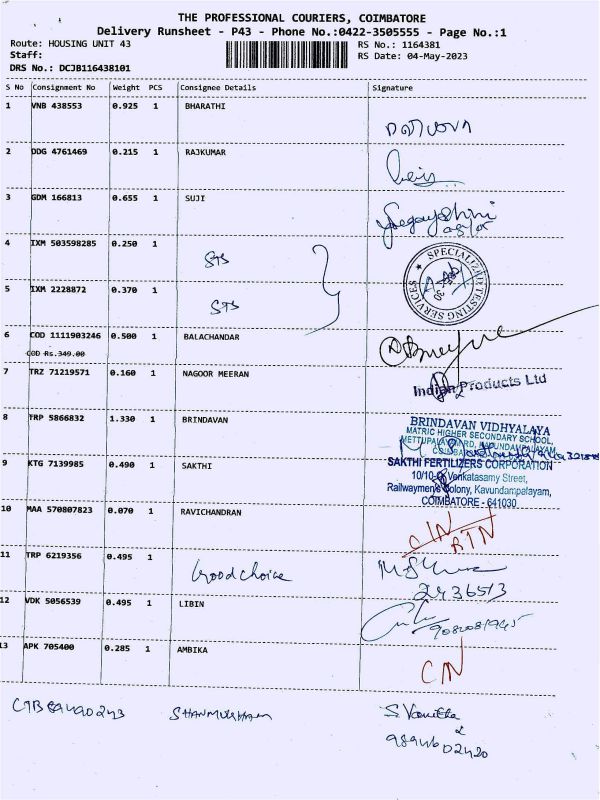 THE PROFESSIONAL COURIERS, COIMBATORE
Delivery Runsheet - P43 - Phone No.:0422-3505555 - Page No.:1
Route: HOUSING UNIT 43
RS No.: 1164381
Staff:
RS Date: 04-May-2023
DRS No.: DCJB116438101
S No Consignment No Weight PCS Consignee Details Signature
1 VNB 438553 0.925 1 BHARATHI
2 DDG 4761469 0.215 1 RAJKUMAR
3 GDM 166813 0.655 1 SUJI
4 IXM 503598285 0.250 1 STS
SPECIALIZED TESTING SERVICES
5 IXM 2228872 0.370 1 STS
6 COD 1111903246 0.500 1 BALACHANDAR
COD Rs.349.00
7 TRZ 71219571 0.160 1 NAGOOR MEERAN
Indian Products Ltd
8 TRP 5866832 1.330 1 BRINDAVAN
BRINDAVAN VIDHYALAYA
MATRIC HIGHER SECONDARY SCHOOL,
METTUPALAYAM ROAD, KAVUNDAMPALAYAM,
9 KTG 7139985 0.490 1 SAKTHI
SAKTHI FERTILIZERS CORPORATION
Venkatasamy Street,
Railwaymen's Colony, Kavundampalayam,
COIMBATORE - 641030
10 MAA 570807823 0.070 1 RAVICHANDRAN
C/N
RTN
11 TRP 6219356 0.495 1 Good choice
2436513
12 VDK 5056539 0.495 1 LIBIN
13 APK 705400 0.285 1 AMBIKA
C/N
SHANMUGHAM S. Vanitha
9894602420